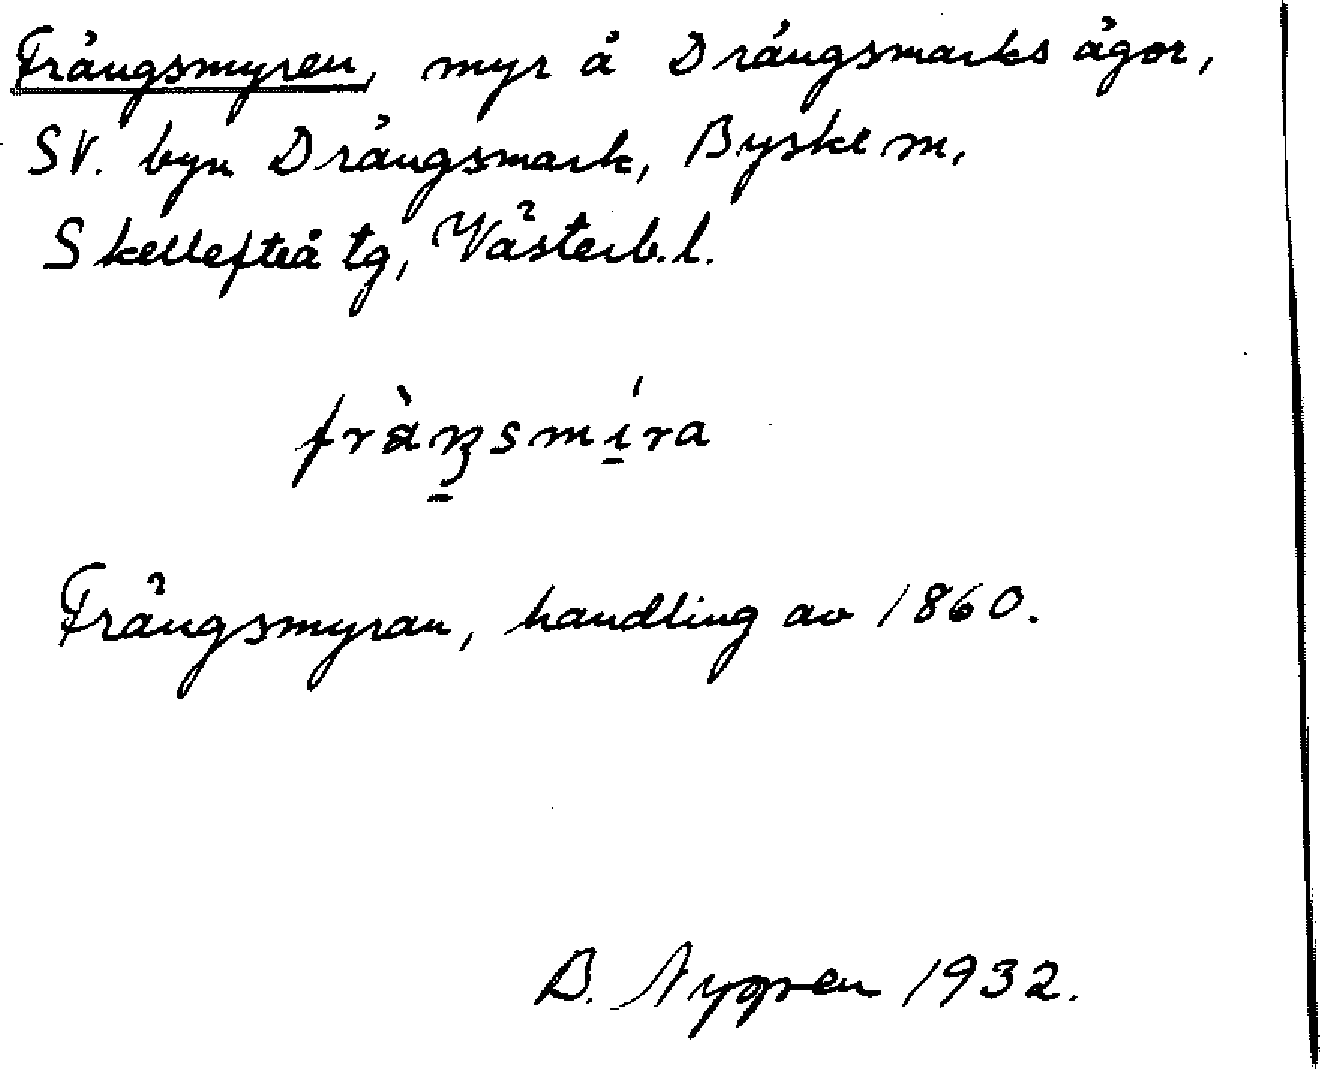 Frängsmyren, myr å Drängsmarks ägor,
SV. byn Drängsmark, Byske sn,
Skellefteå tg, Västerb. l.
fràŋsmíra
Frängsmyran, handling av 1860.
B. Nygren 1932.